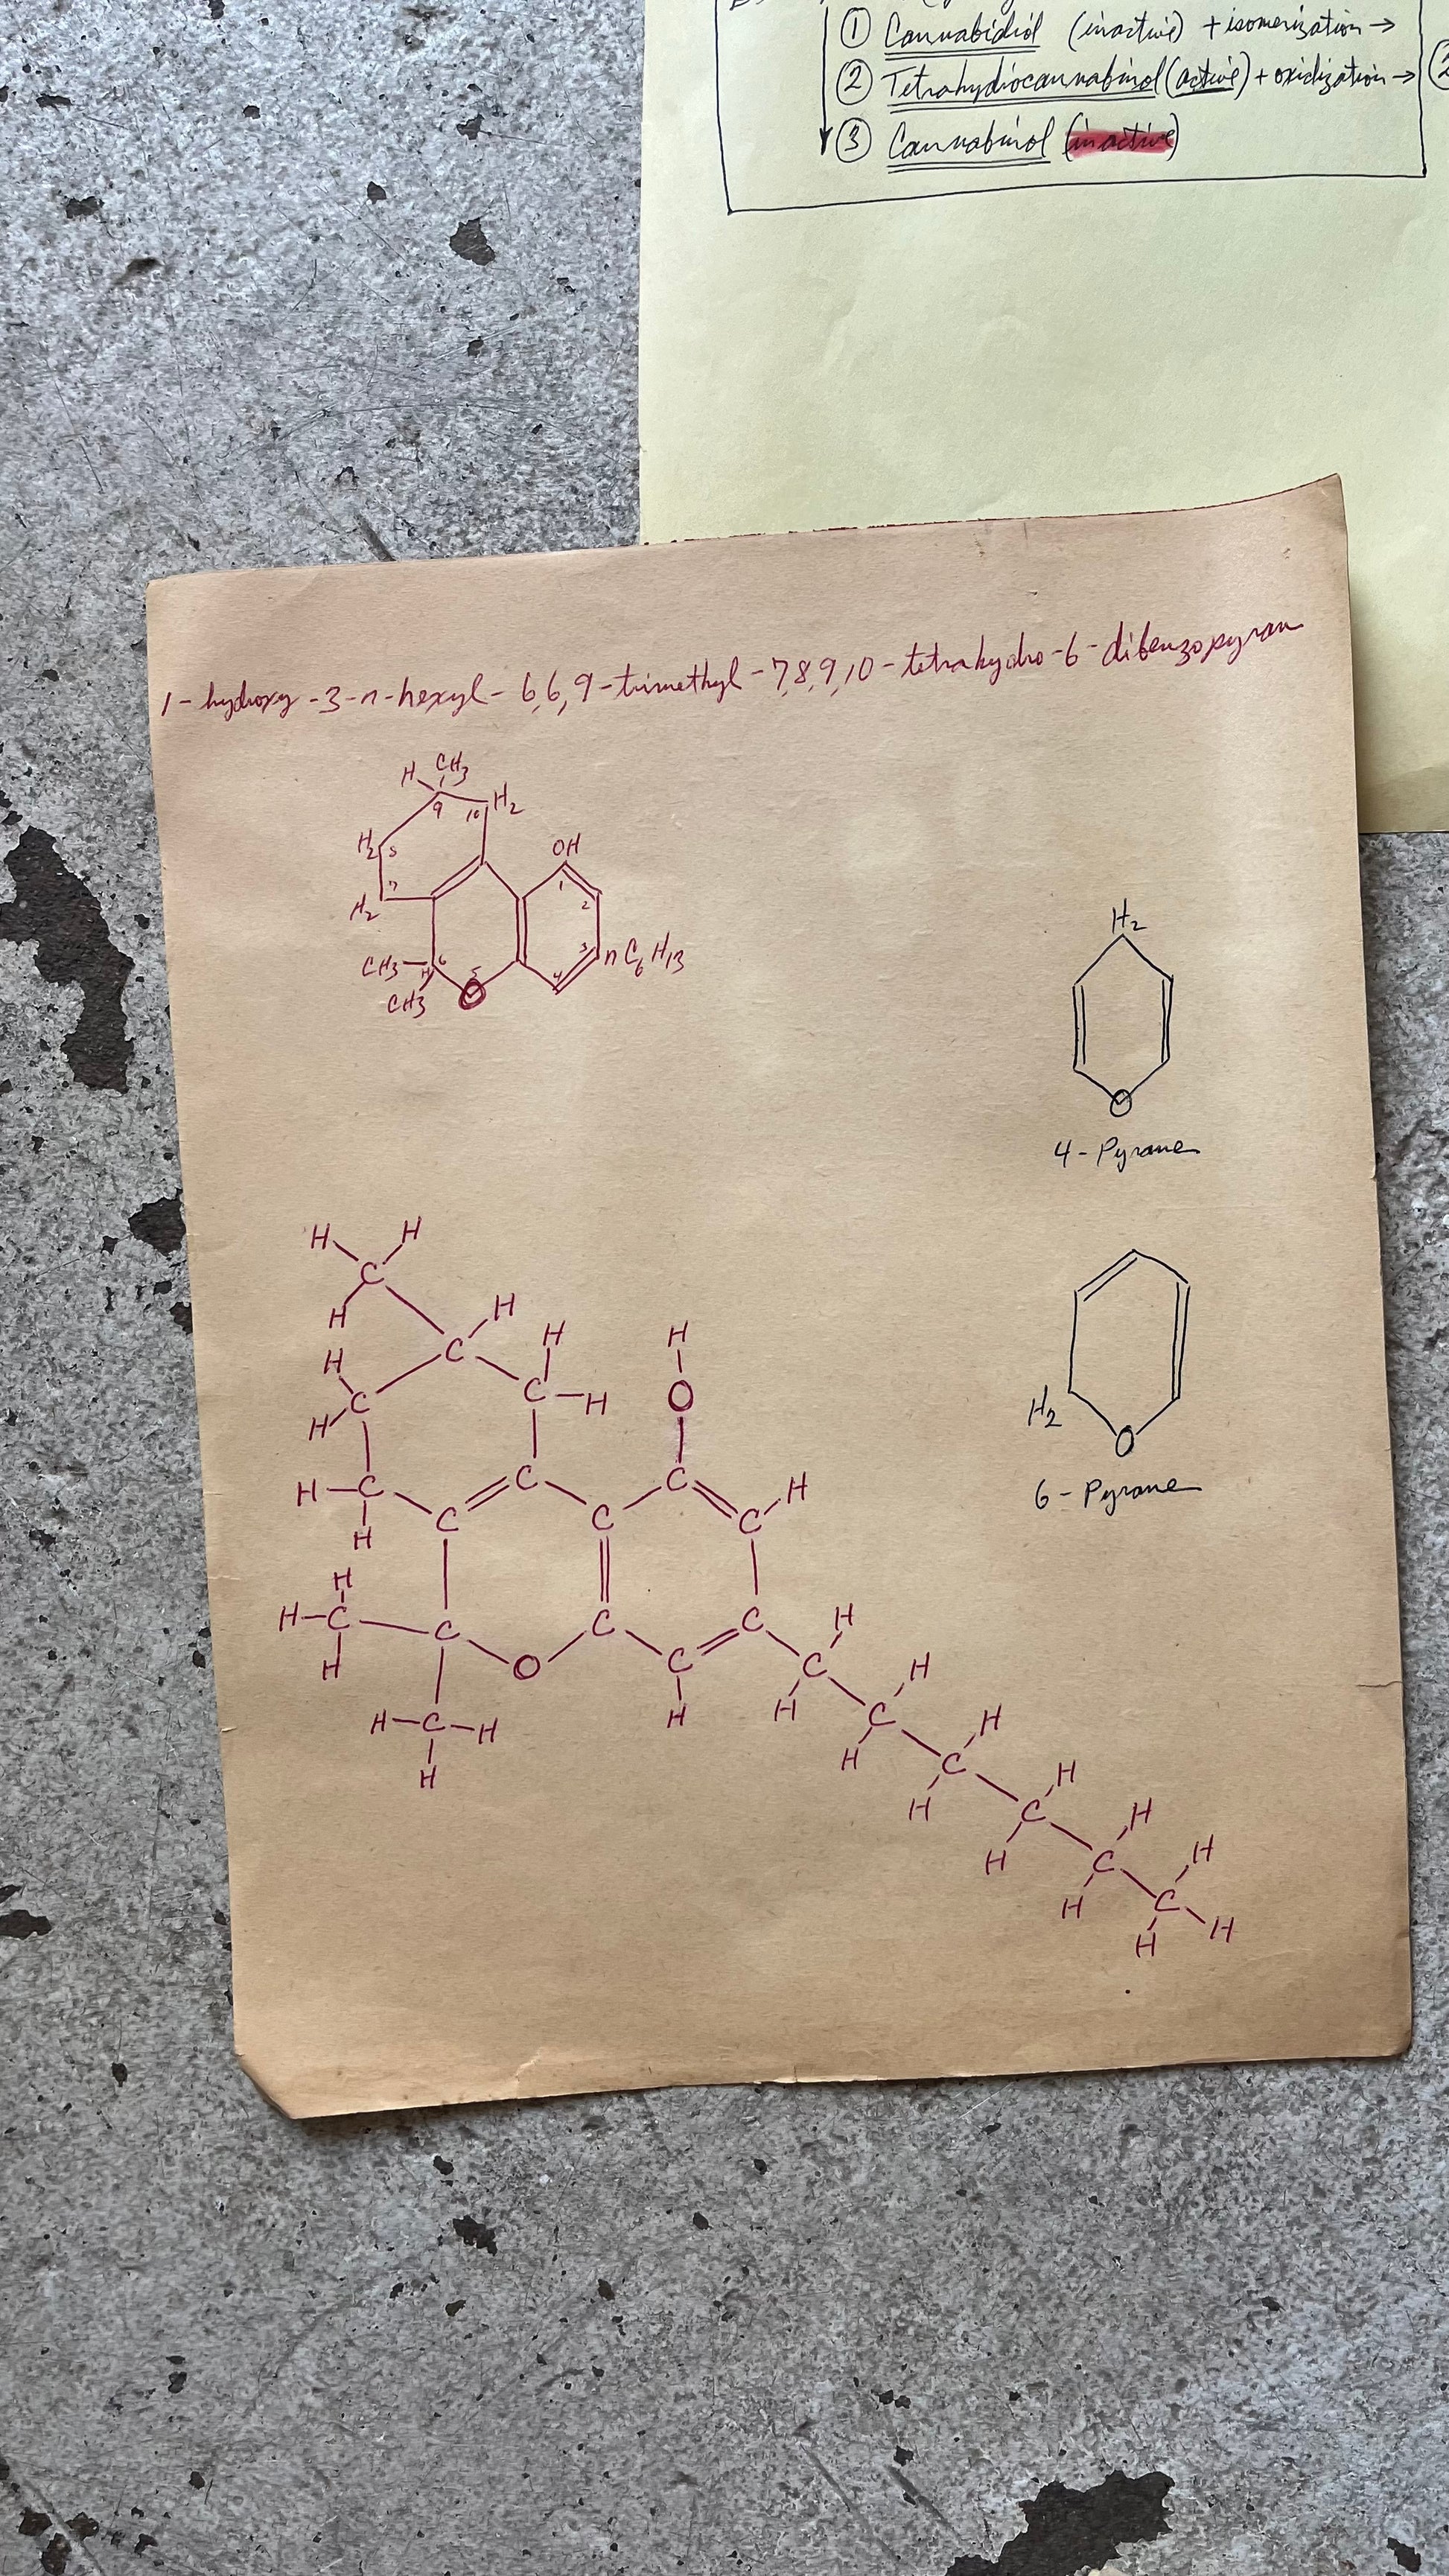 ① Cannabidiol (inactive) + isomerization →
② Tetrahydrocannabinol (active) + oxidization → (2
③ Cannabinol (inactive)
1-hydroxy-3-n-hexyl-6,6,9-trimethyl-7,8,9,10-tetrahydro-6-dibenzopyran
H CH3
9 10 H2
H2 8
OH
7 1
H2 2
CH3 6 3 n C6 H13
H 5 4
CH3 O
H2
O
4-Pyrane
H2
O
6-Pyrane
H H
C
H H
C H
H H
C C-H O
H
H-C C C H
H C C C
H
H-C C C C H
H O C C
H-C-H H H C H
H H C H
H C H
H C H
H C H
C H
H